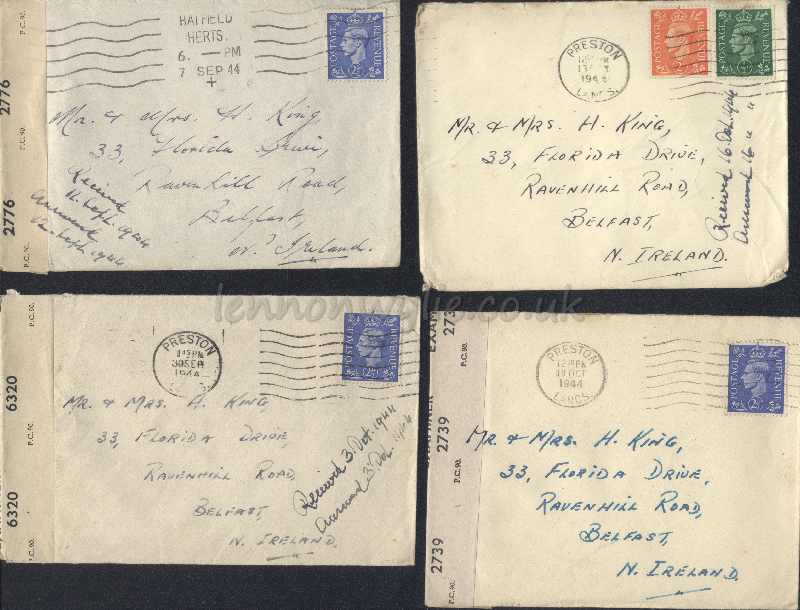 P.C. 90.
2776
P.C. 90.
2776
P.C. 90.
HATFIELD
HERTS.
6. — PM
7 SEP 44
+
POSTAGE
REVENUE
2½
Mr. & Mrs. H. King,
33, Florida Drive,
Ravenhill Road,
Belfast,
N. Ireland.
Received
11. Sept. 1944
Answered
12. Sept. 1944
PRESTON
1944
LANCS.
POSTAGE
REVENUE
2
POSTAGE
REVENUE
MR. & MRS. H. KING,
33, FLORIDA DRIVE,
RAVENHILL ROAD,
BELFAST,
N. IRELAND.
Received 16. Oct. 1944
Answered 16 " "
lennonwylie.co.uk
P.C. 90.
6320
P.C. 90.
6320
P.C. 90.
PRESTON
30 SEP
1944
POSTAGE
REVENUE
2½
MR. & MRS. H. KING
33, FLORIDA DRIVE,
RAVENHILL ROAD,
BELFAST,
N. IRELAND.
Received 3. Oct. 1944
Answered 3. Oct. 1944
EXAM
273
P.C. 90.
2739
P.C. 90.
2739
P.C. 90.
PRESTON
12 PM
18 OCT
1944
LANCS.
POSTAGE
REVENUE
2½
MR. & MRS. H. KING,
33, FLORIDA DRIVE,
RAVENHILL ROAD,
BELFAST,
N. IRELAND.